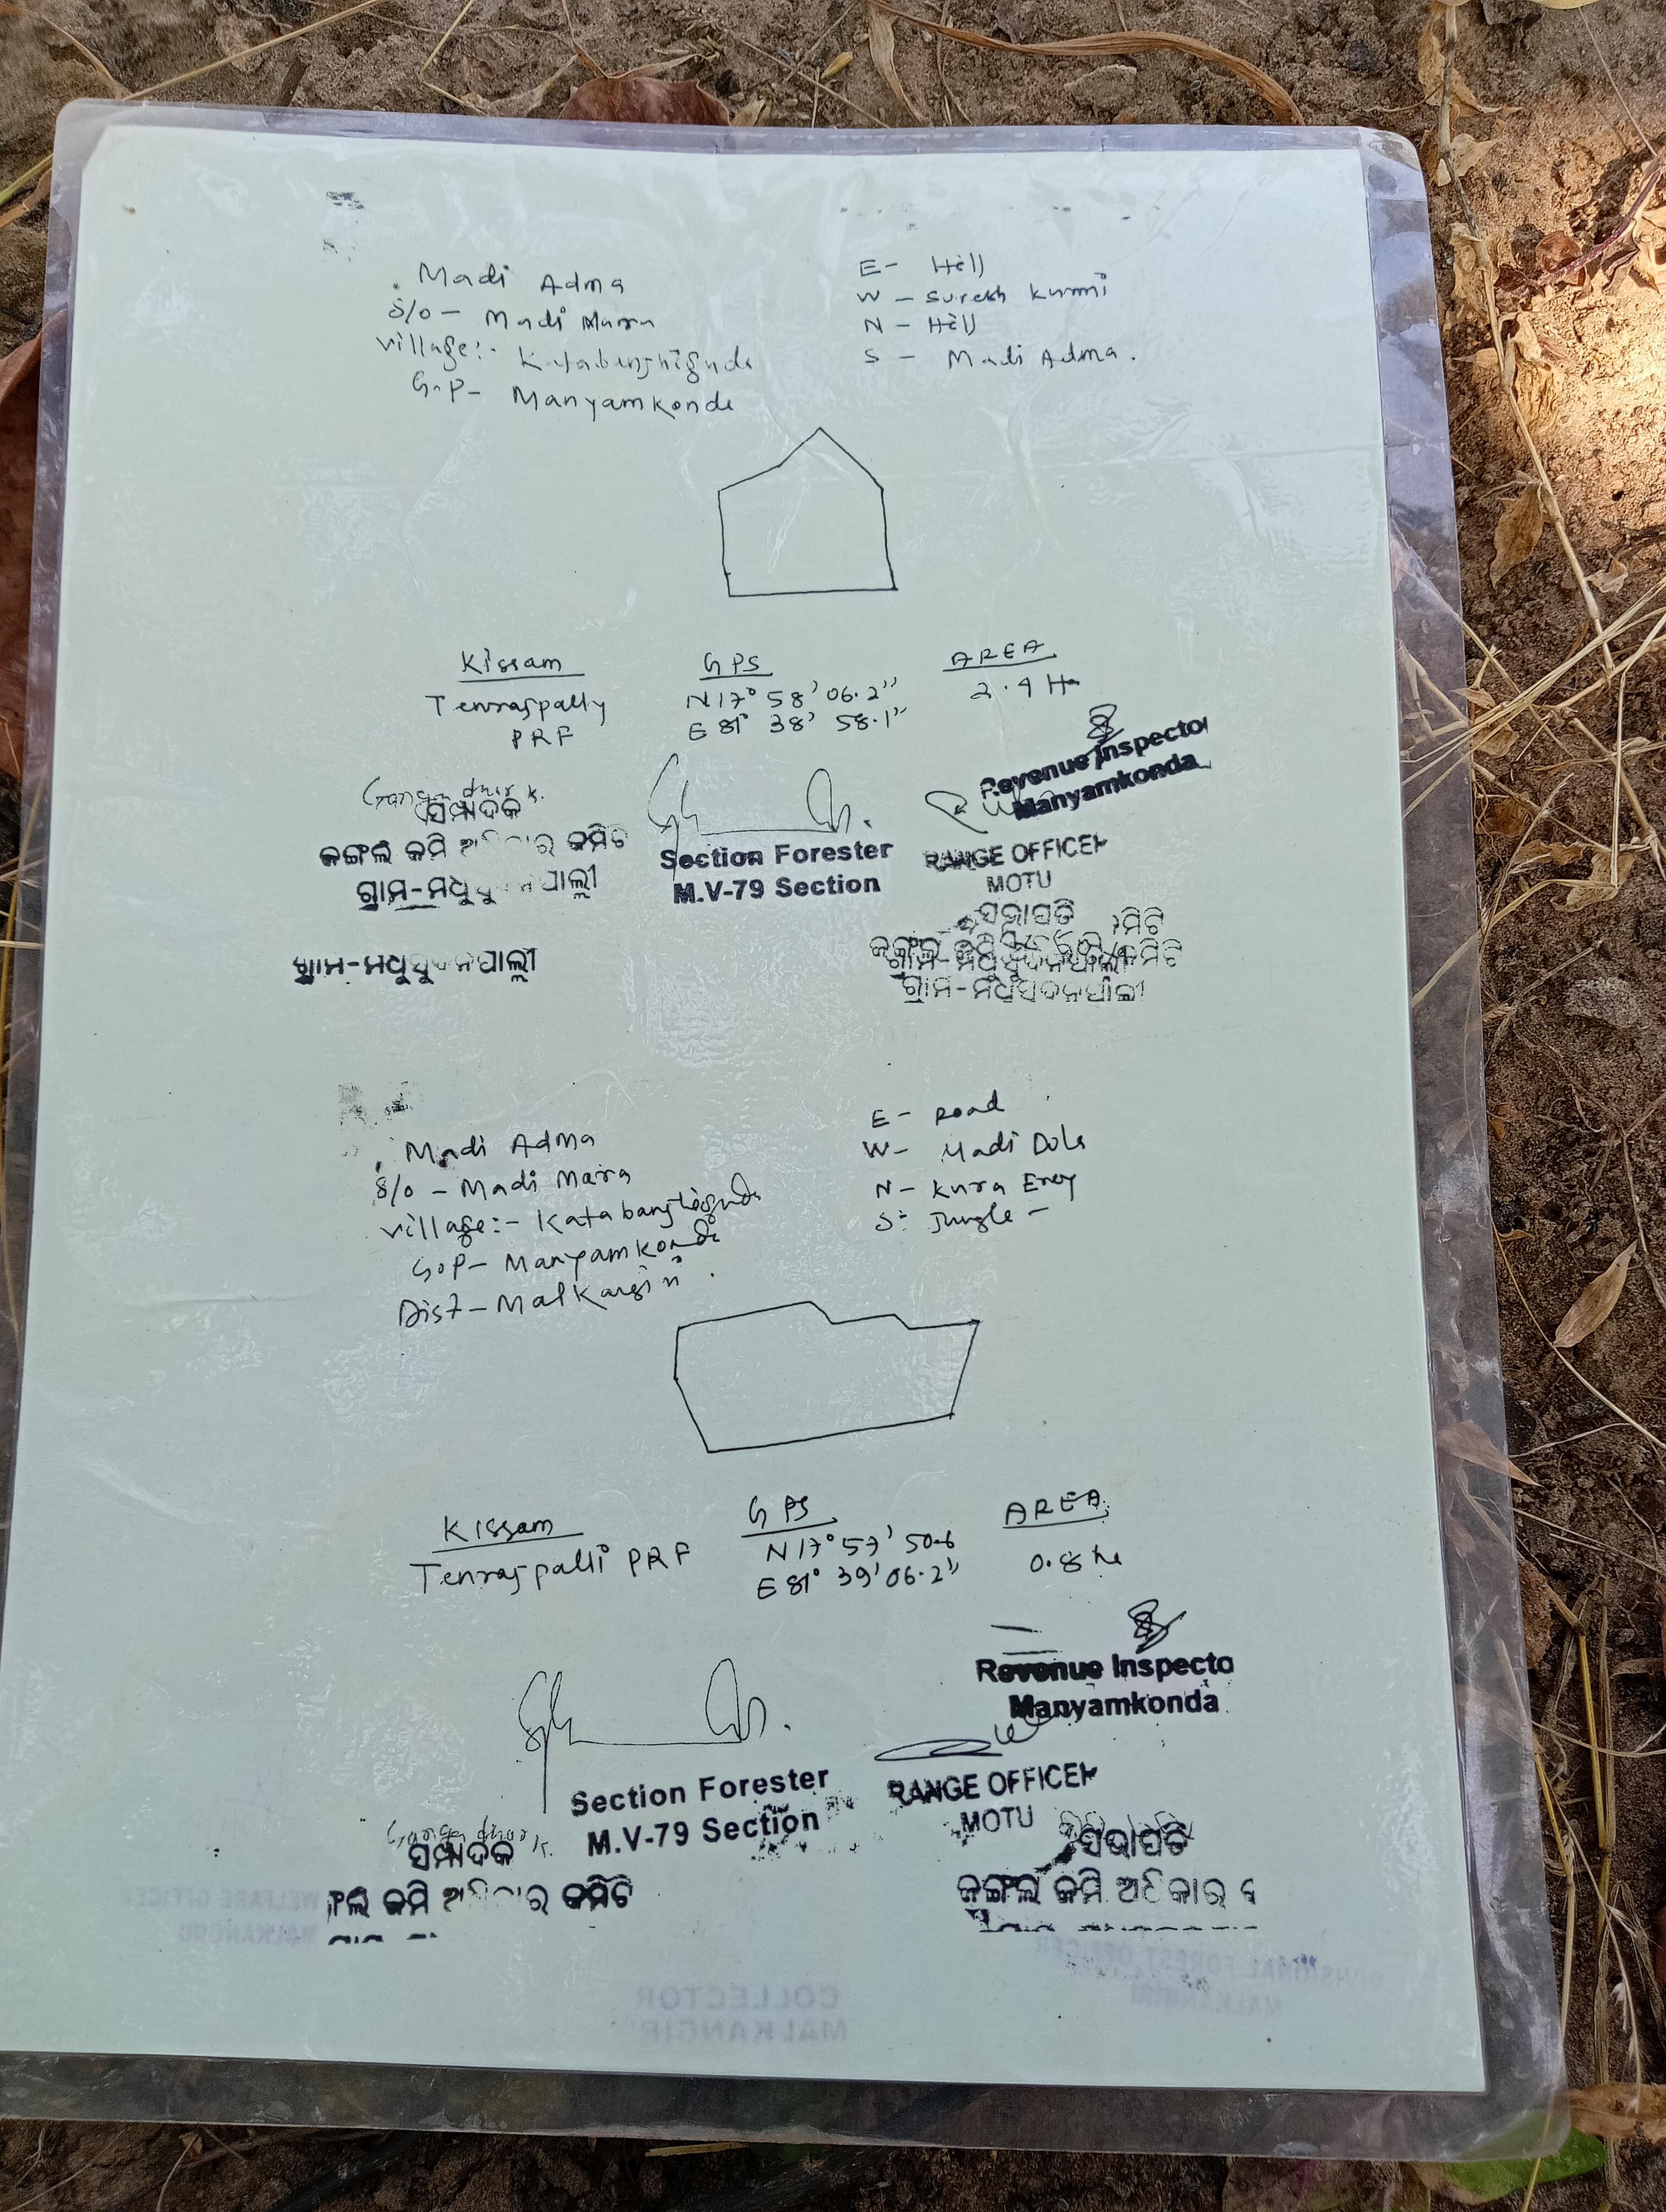 Madi Adma
S/o - Madi Mara
village:- Katabanshiguda
G.P- Manyamkonda
E- Hill
W - Suresh Kurmi
N - Hill
S - Madi Adma.
Kissam
Tenraspally
PRF
GPS
N17° 58' 06.2"
E 81° 38' 58.1"
AREA
2.4 Ha
Revenue Inspector
Manyamkonda
ସମ୍ପାଦକ
ଜଙ୍ଗଲ ଜମି ଅଧିକାର କମିଟି
ଗ୍ରାମ-ମଧୁସୁଦନପାଲ୍ଲୀ
Section Forester
M.V-79 Section
RANGE OFFICER
MOTU
ସଭାପତି
ଗ୍ରାମ-ମଧୁସୁଦନପାଲ୍ଲୀ
ଗ୍ରାମ-ମଧୁସୁଦନପାଲ୍ଲୀ
Madi Adma
S/o - Madi Mara
village:- Katabanshiguda
G.P- Manyamkonda
Dist- Malkangiri.
E- Road
W- Madi Dula
N- Kura
S- Jungle -
Kissam
Tenraspalli PRF
GPS
N17° 57' 50.6
E 81° 39' 06.2"
AREA
0.8 ha
Revenue Inspecto
Manyamkonda
Section Forester
M.V-79 Section
RANGE OFFICER
MOTU
ସମ୍ପାଦକ
ଜମି ଅଧିକାର କମିଟି
ସଭାପତି
ଜଙ୍ଗଲ ଜମି ଅଧିକାର
WELFARE OFFICER
MALKANGIRI
DIVISIONAL FOREST OFFICER
MALKANGIRI
COLLECTOR
MALKANGIRI